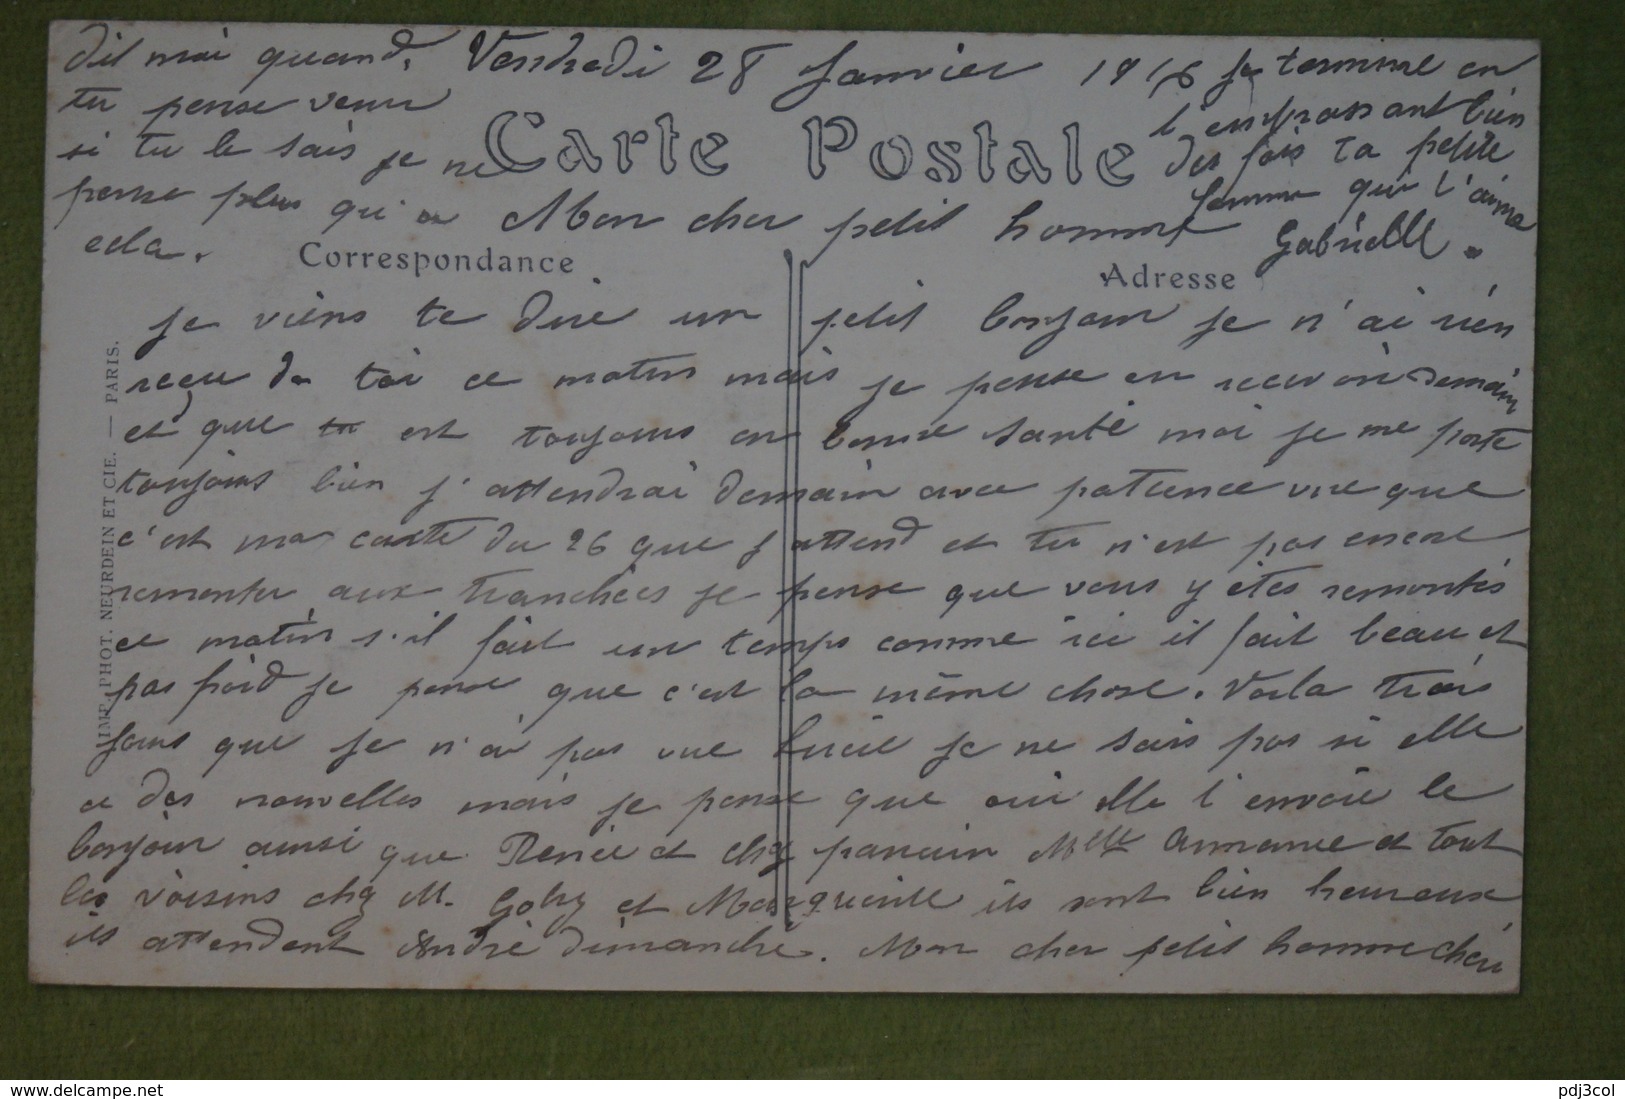 Vendredi 28 Janvier 1916
Carte Postale
Mon cher petit homme
Correspondance
Adresse
je viens te dire un petit bonjour je n'ai rien
reçu de toi ce matin mais je pense en recevoir demain
et que tu est toujours en bonne santé moi je me porte
toujours bien j'attendrai demain avec patience vue que
c'est ma carte du 26 que j'attend et tu n'est pas encore
remonter aux tranchées je pense que vous y êtes remontés
ce matin s'il fait un temps comme ici il fait beau et
pas froid je pense que c'est la même chose. Voila trois
jours que je n'ai pas vue Lucie je ne sais pas si elle
a des nouvelles mais je pense que oui elle t'envoie le
bonjour ainsi que Renée et chez parrain Mlle Armance et tout
les voisins chez M. Gohy et Marguerite ils sont bien heureux
ils attendent André dimanche. Mon cher petit homme chéri
je termine en
t'embrassant bien
des fois ta petite
femme qui t'aime
Gabrielle.
dit moi quand
tu pense venir
si tu le sais je ne
pense plus qu'a
cela.
IMP. PHOT. NEURDEIN ET CIE. — PARIS.
www.delcampe.net
pdj3col